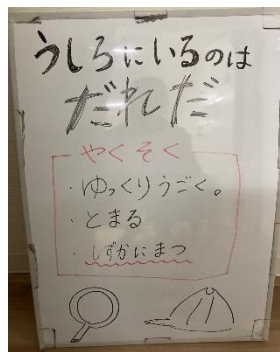 うしろにいるのは
だれだ
やくそく
・ゆっくりうごく。
・とまる
・しずかにまつ